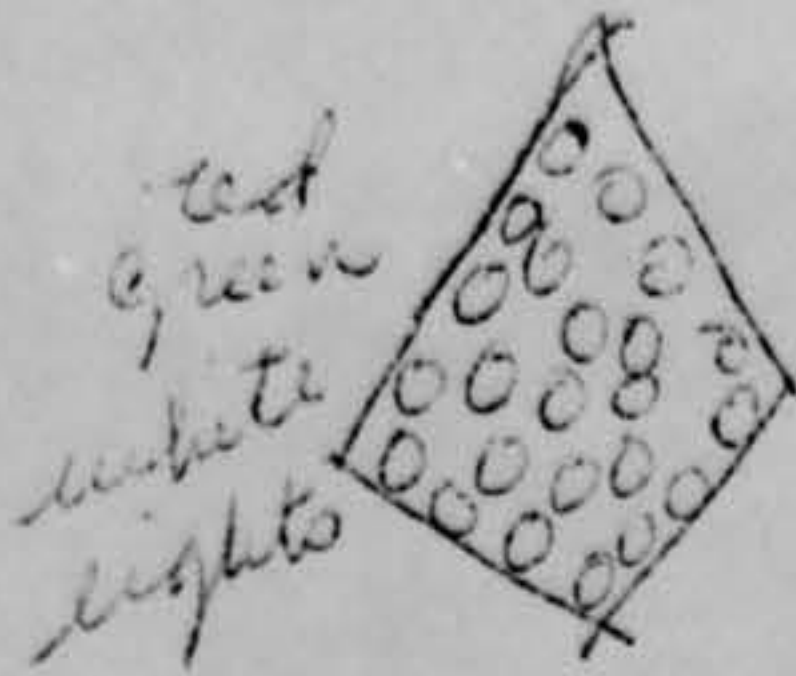 red
green
white
lights